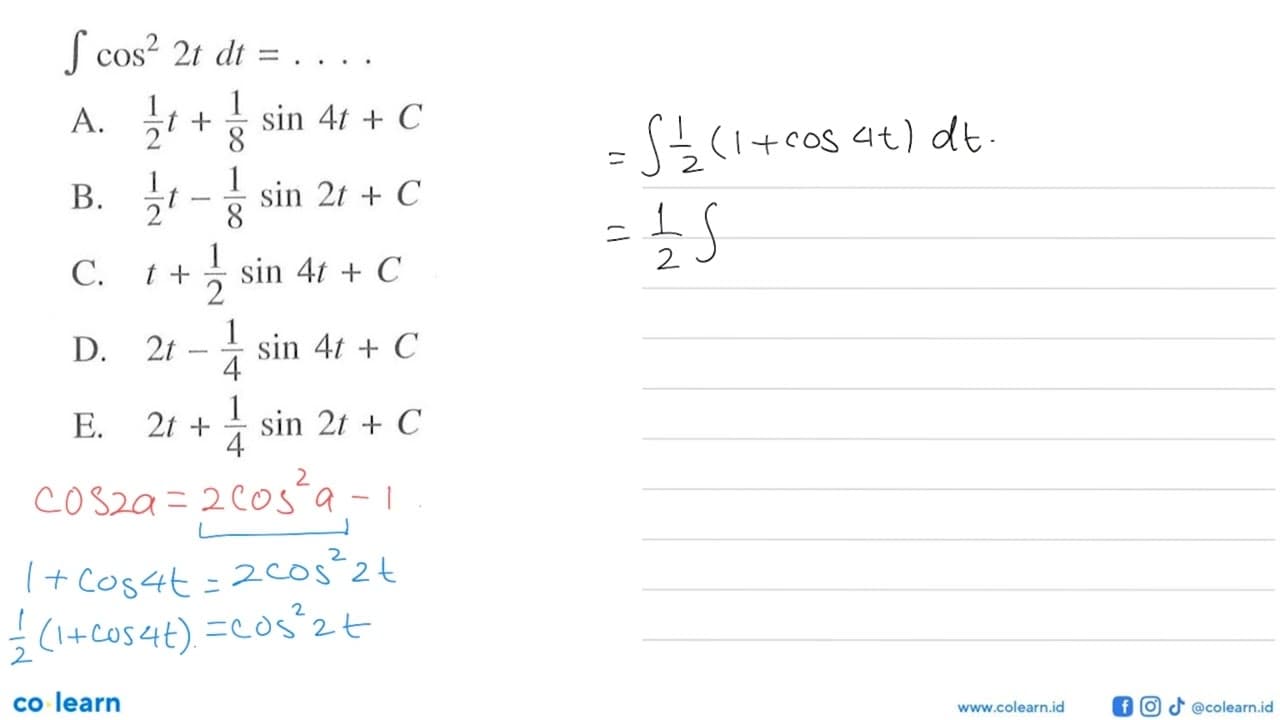 ∫ cos² 2t dt = . . . .
A. 1/2 t + 1/8 sin 4t + C
B. 1/2 t − 1/8 sin 2t + C
C. t + 1/2 sin 4t + C
D. 2t − 1/4 sin 4t + C
E. 2t + 1/4 sin 2t + C
cos2a = 2cos²a − 1
1 + cos4t = 2cos²2t
1/2 (1+cos4t) = cos²2t
= ∫ 1/2 (1+cos 4t) dt.
= 1/2 ∫
co learn
www.colearn.id @colearn.id